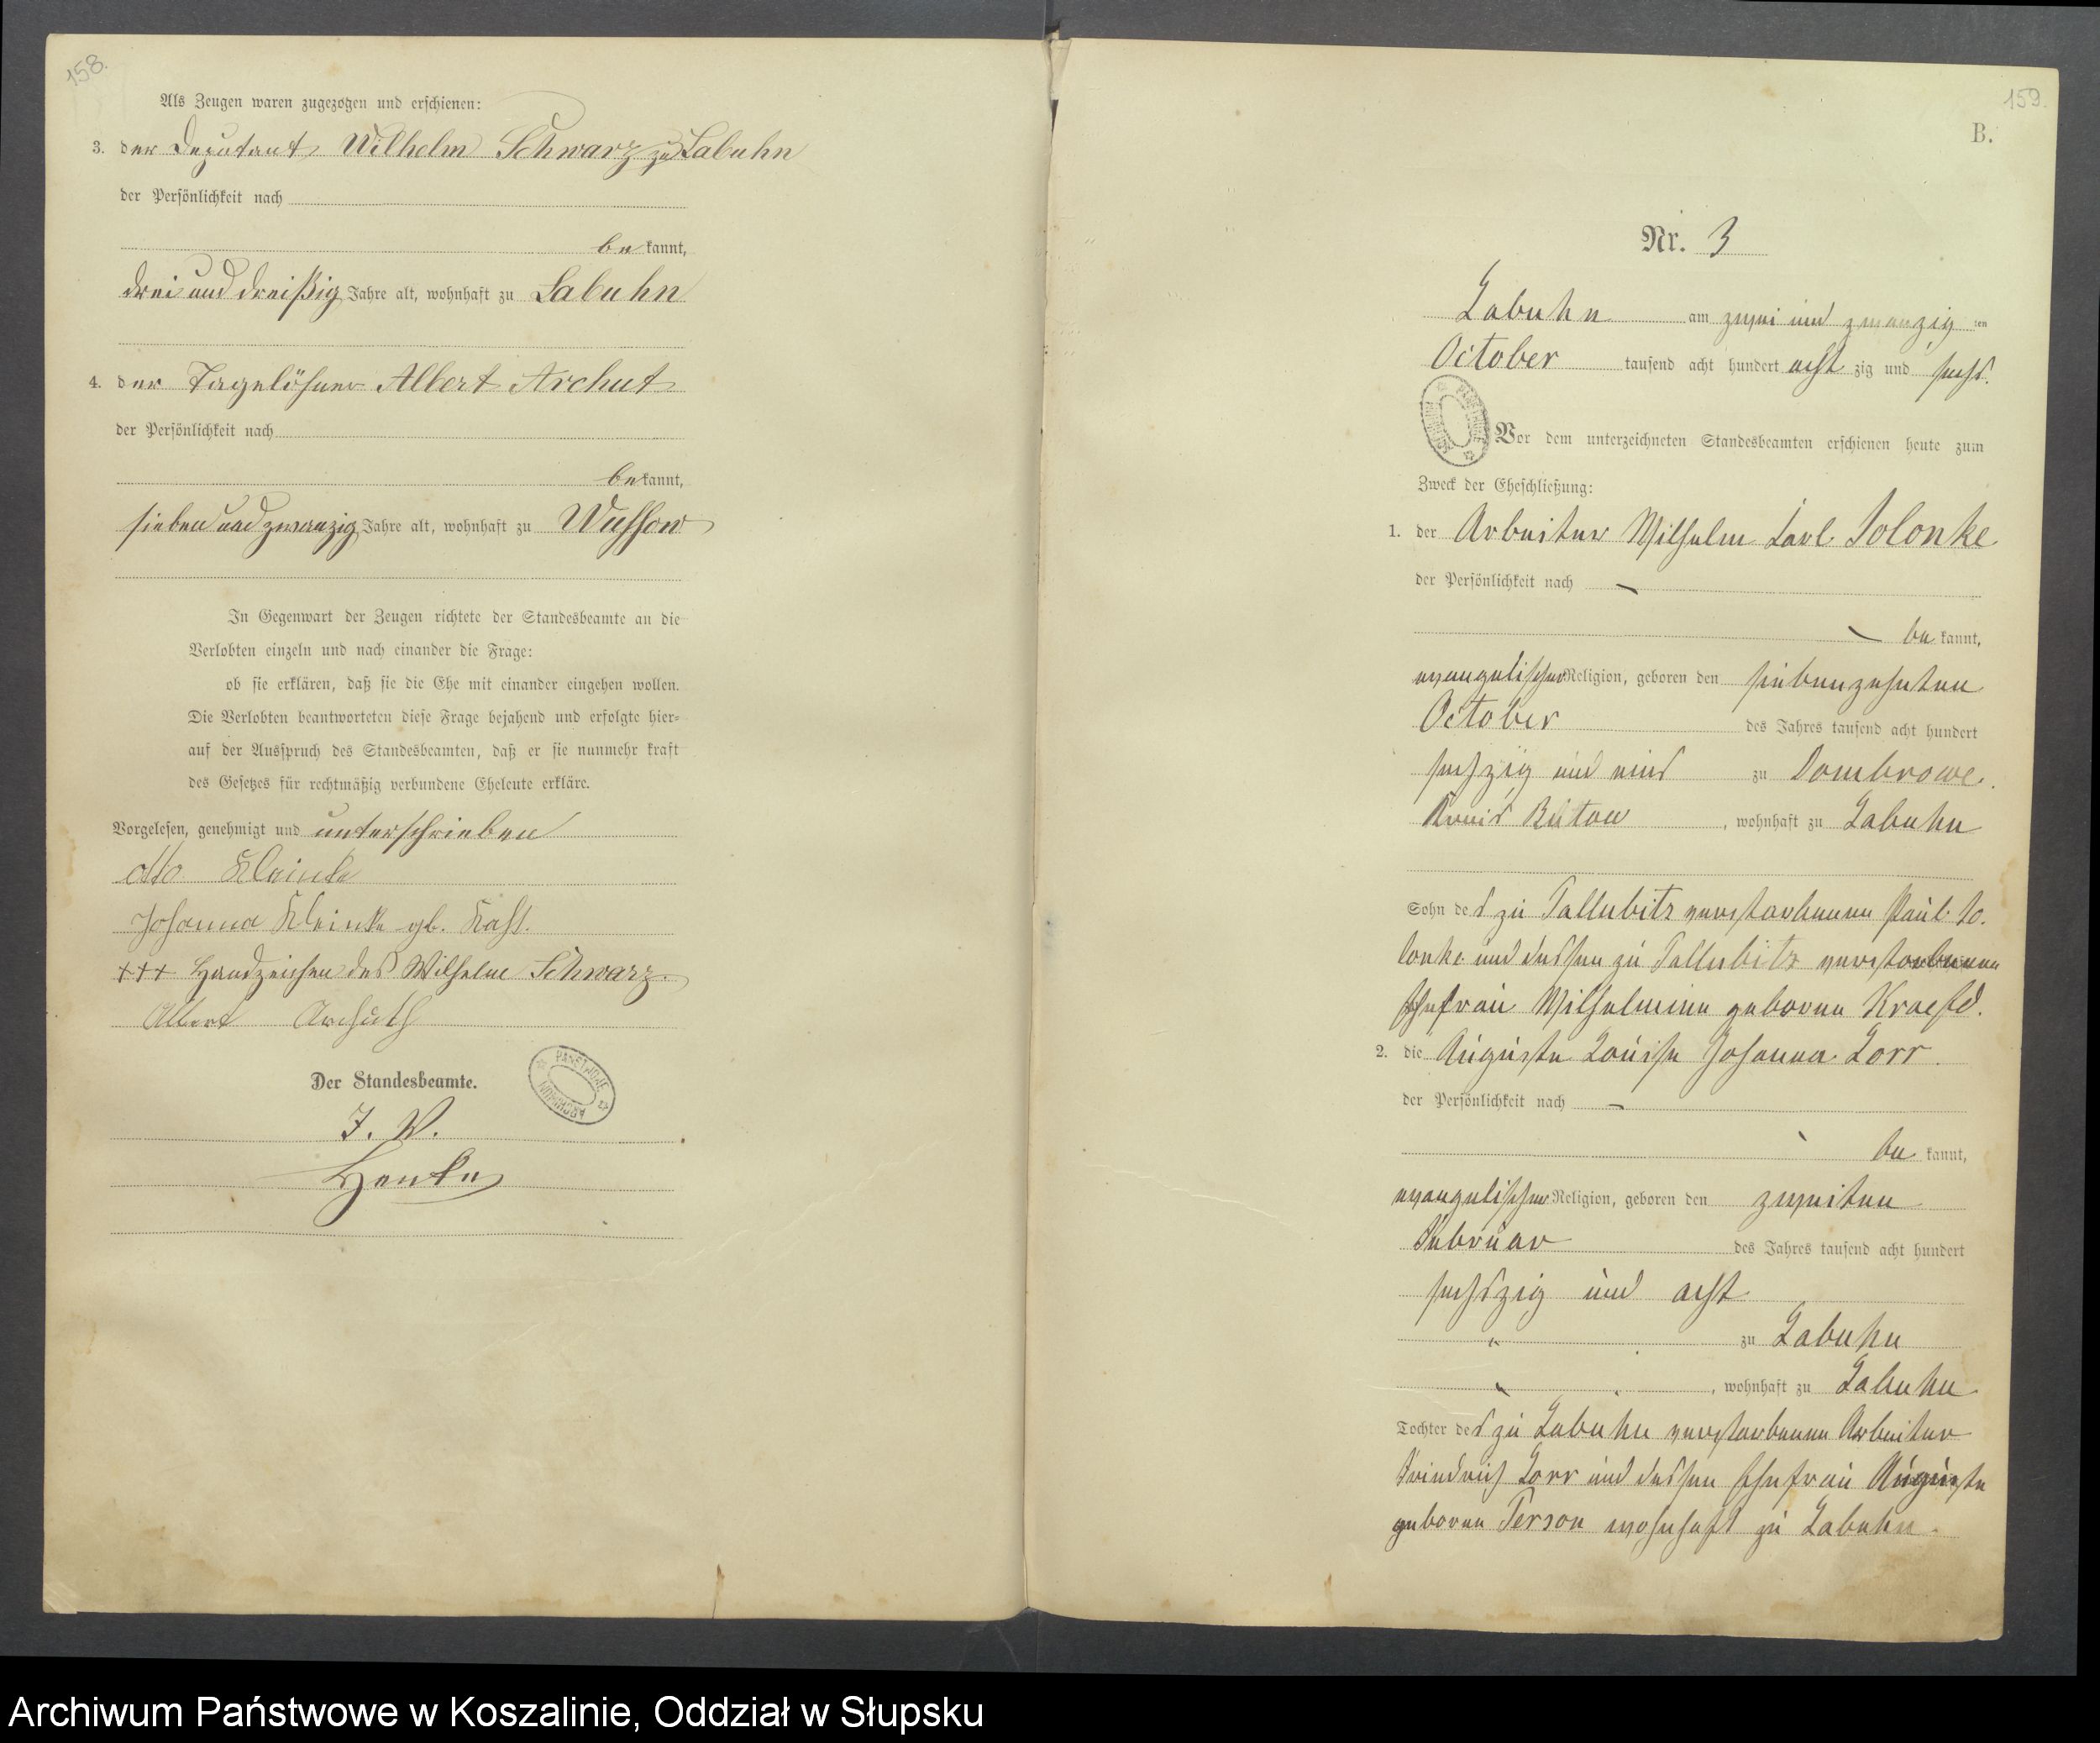 158.
Als Zeugen waren zugezogen und erschienen:
3. der Deputant Wilhelm Schwarz zu Labuhn
der Persönlichkeit nach
be kannt,
drei und dreißig Jahre alt, wohnhaft zu Labuhn
4. der Tagelöhner Albert Archut
der Persönlichkeit nach
be kannt,
sieben und zwanzig Jahre alt, wohnhaft zu Wussow
In Gegenwart der Zeugen richtete der Standesbeamte an die
Verlobten einzeln und nach einander die Frage:
ob sie erklären, daß sie die Ehe mit einander eingehen wollen.
Die Verlobten beantworteten diese Frage bejahend und erfolgte hier-
auf der Ausspruch des Standesbeamten, daß er sie nunmehr kraft
des Gesetzes für rechtmäßig verbundene Eheleute erkläre.
Vorgelesen, genehmigt und unterschrieben
Otto Kleinke
Johanna Kleinke gb.
+++ Handzeichen des Wilhelm Schwarz.
Albert Archuth
Der Standesbeamte.
PAŃSTWOWE ARCHIWUM
I. V.
Henke
159.
B.
Nr. 3
Labuhn am zwei und zwanzig ten
October tausend acht hundert acht zig und sechs.
Vor dem unterzeichneten Standesbeamten erschienen heute zum
Zweck der Eheschließung:
1. der Arbeiter Wilhelm Carl Jolonke
der Persönlichkeit nach
be kannt,
evangelischer Religion, geboren den siebenzehnten
October des Jahres tausend acht hundert
sechzig und eins zu Dombrowe.
Kreis Bütow, wohnhaft zu Labuhn
Sohn des zu Tallubitz verstorbenen Paul Jo.
lonke und dessen zu Tallubitz verstorbenen
Ehefrau Wilhelmine geborne
2. die Auguste Louise Johanna Lorr.
der Persönlichkeit nach
be kannt,
evangelischer Religion, geboren den zweiten
Februar des Jahres tausend acht hundert
sechszig und acht
zu Labuhn
, wohnhaft zu Labuhn
Tochter des zu Labuhn verstorbenen Arbeiter
Friedrich Lorr und dessen Ehefrau Auguste
geborne Terson wohnhaft zu Labuhn.
Archiwum Państwowe w Koszalinie, Oddział w Słupsku